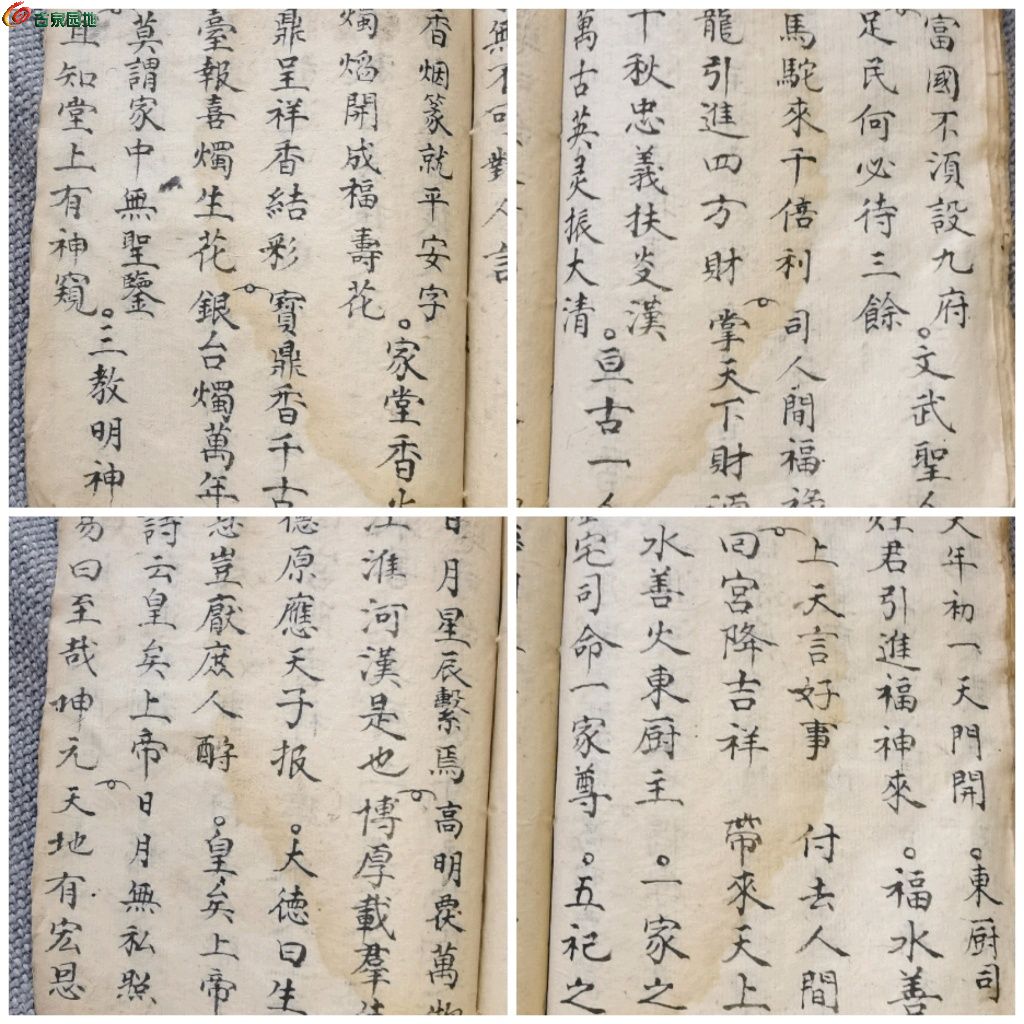 古泉园地
無不可對人言
香烟篆就平安字
。家堂香火
燭熖開成福壽花
鼎呈祥香結彩
寶鼎香千古
臺報喜燭生花
銀台燭萬年
莫謂家中無聖鑒
。三教明神
宜知堂上有神窺
富國不須設九府
。文武聖人
足民何必待三餘
馬駝來千倍利
司人間福祿
龍引進四方財
掌天下財源
千秋忠義扶炎漢
。亘古一人
萬古英灵振大清
日月星辰繫焉
高明覆萬物
江淮河漢是也
博厚載羣生
德原應天子报
。大德曰生
忍豈厭庶人酧
。皇矣上帝
詩云皇矣上帝
日月無私照
易曰至哉坤元
天地有宏恩
大年初一天門開
。東厨司
灶君引進福神來
。福水善
上天言好事
付去人間
回宮降吉祥
帶來天上
水善火東厨主
。一家之
宅司命一家尊
。五祀之